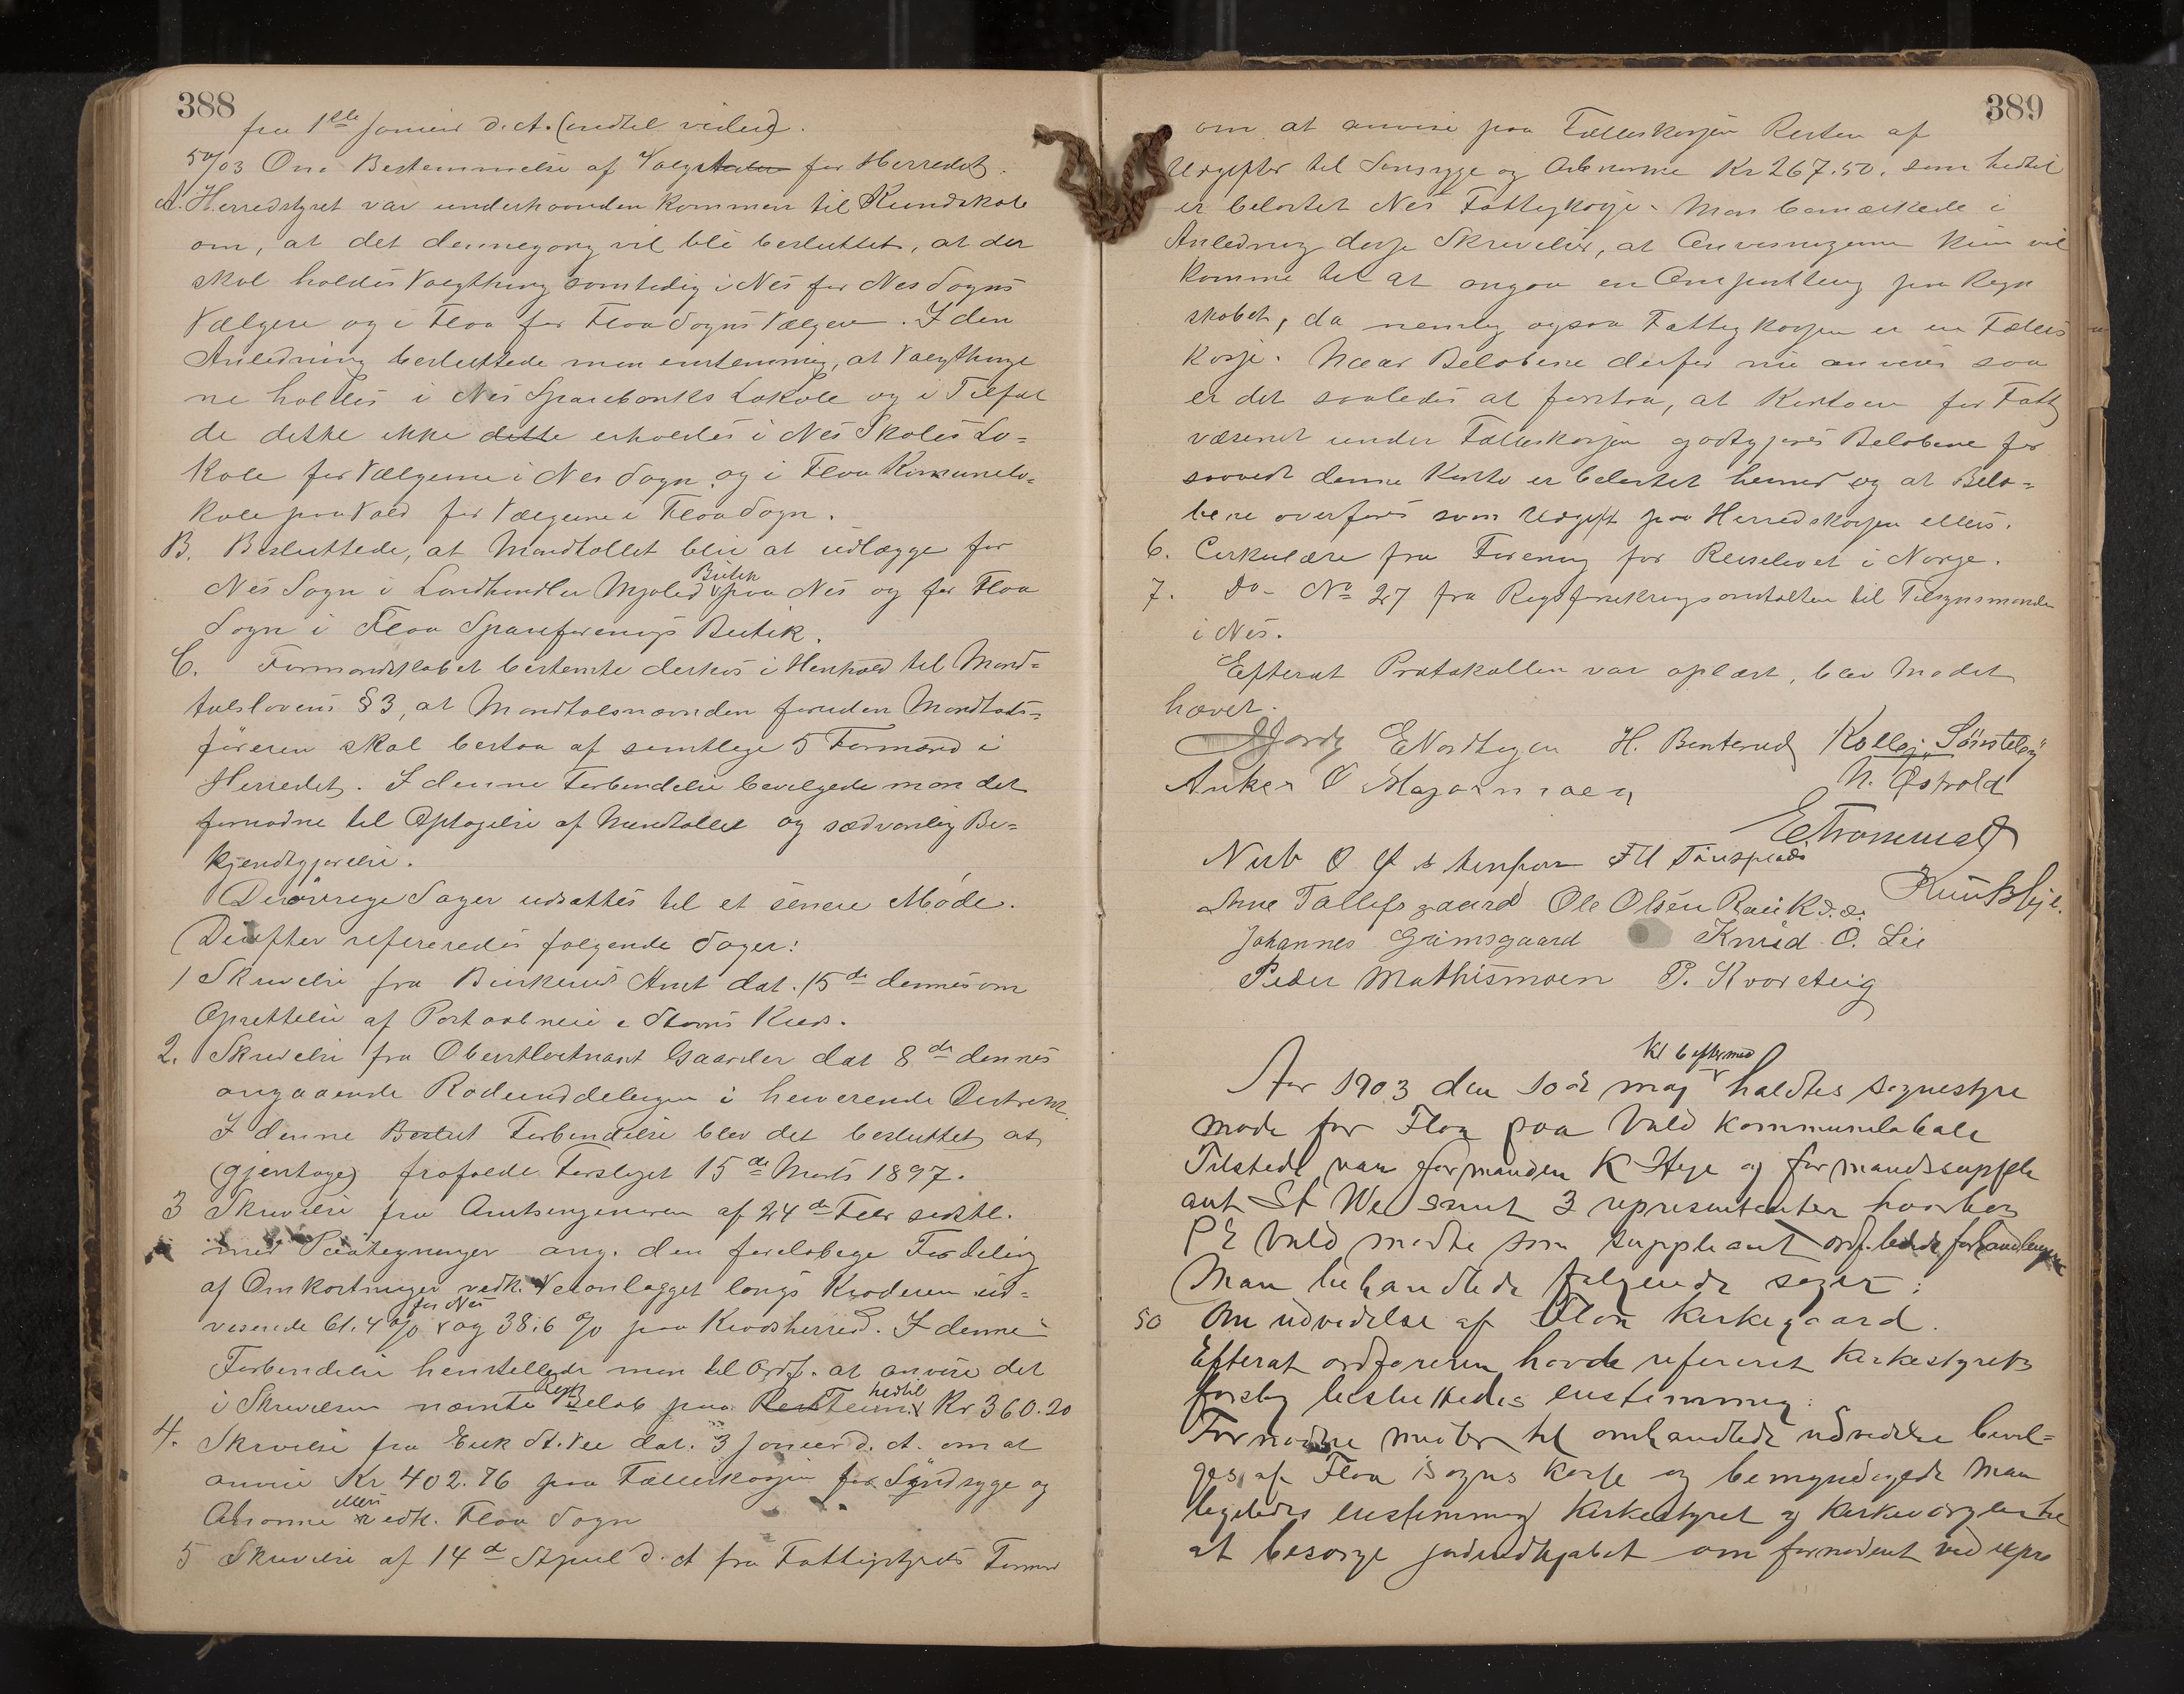 388
fra 1ste Januar d. A. (indtil videre).
5%03 Om Bestemmelse af Valgsteder for Herredet.
A. Herredstyret var underhaanden kommen til Kundskab
om, at det dennegang vil bli besluttet, at der
skal holdes Valgthing samtidig i Nes for Nes Sogns
Vælgere og i Flaa for Flaa Sogns Vælgere. I den
Anledning besluttede man enstemmig, at Valgthinge
ne holdes i Nes Sparebanks Lokale og i Tilfæl
de dette ikke dette erholdes i Nes Skoles Lo=
kale for Vælgerne i Nes Sogn og i Flaa Komunelo=
kale paa Vald for Vælgerne i Flaa Sogn.
B. Besluttede, at Mandtallet blir at udlægge for
Nes Sogn i Landhandler Mjøled Butik paa Nes og for Flaa
Sogn i Flaa Spareforenings Butik.
C. Formandskabet bestemte derhos i Henhold til Mand=
talslovens § 3, at Mandtalsnævnden foruden Mandtals=
føreren skal bestaa af samtlige 5 Formænd i
Herredet. I denne Forbindelse bevilgede man det
fornødne til Optagelse af Mandtallet og sædvanlig Be=
kjendtgjørelse.
De øvrige Sager udsattes til et senere Møde.
Derefter refereredes følgende Sager:
1 Skrivelse fra Buskeruds Amt dat. 15de dennes om
Oprettelse af Postaabneri i Stavns Kreds.
2. Skrivelse fra Oberstløitnant Gaarder dat 8de dennes
angaaende Rodeinddelingen i herværende Distrikt.
I denne Beslut Forbindelse blev det besluttet at
(gjentage) frafalde Forslaget 15de Marts 1897.
3 Skrivelse fra Amtsingeniøren af 24de Febr sidstl.
med Paategninger ang. den foreløbige Fordeling
af Omkostninger vedk. Veianlægget langs Krøderen ud=
visende 61.4 % for Nes og 38.6 % paa Krødsherred. I denne
Forbindelse henstillede man til Ordf. at anvise det
i Skrivelsen nævnte Beløb paa hedtil Kr 360.20
4. Skrivelse fra Erik St. Vee dat. 3 Januar d. A. om at
anvise Kr 402.76 paa Felleskassen for Sindsyge og
Abnorme ellers vedk. Flaa Sogn
5 Skrivelse af 14de April d. A fra Fattigstyrets Formand
389
om at anvise paa Felleskassen Resten af
Udgifter til Sinsyge og Abnorme Kr 267.50, som hedtil
er belastet Nes Fattigkasse. Man bemærkede i
Anledning disse Skrivelser, at Anvisningerne kun vil
komme til at angaa en Omposttering paa Regn
skabet, da nemlig ogsaa Fattigkassen er en Fælles
Kasse. Naar Beløbene derfor nu anvises saa
er det saaledes at forstaa, at Kontoen for Fattig
væsenet under Felleskassen godtgjøres Beløbene for
saavidt denne Konto er belastet hermed og at Belø=
bene overføres som Udgift paa Herredskassen ellers.
6. Cirkulære fra Forening for Reiselivet i Norge.
7. Do- No 27 fra Rigsforsikringsanstalten til Tilsynsmanden
i Nes.
Efterat Protokollen var oplæst, blev Mødet
hævet.
ENordhagen H. Benterud Kolbj. Sørsteløy
Anker O Hagarmoen N. Østvold
ETrommald
Nub O
Arne Tollefsgaard Ole Olsen Rank d.æ. Knut Hije.
Johannes Grimsgaard Knud O. Lie
Peder Mathismoen P. Kvarsteig
Aar 1903 den 10de maj Kl 6 eftermid haldtes sognestyre
møde for Flaa paa Vald kommunelokale
Tilstede var formanden K Hije og formandssupple
ant St We samt 3 representanter hvorhos
P E Vald mødte som suppleant ordf. ledede forhandlingerne
Man behandlede følgende sager:
50 Om udvidelse af Flaa kirkegaard.
Efterat ordføreren havde refereret kirkestyrets
forslag besluttedes enstemmig:
Fornødne midler til omhandlede udvidelse bevil=
ges af Flaa sogns kasse og bemyndigede man
ligeledes enstemmig kirkestyret og kirkeværgerne
at besørge jordindkjøbet om fornødent ved expro